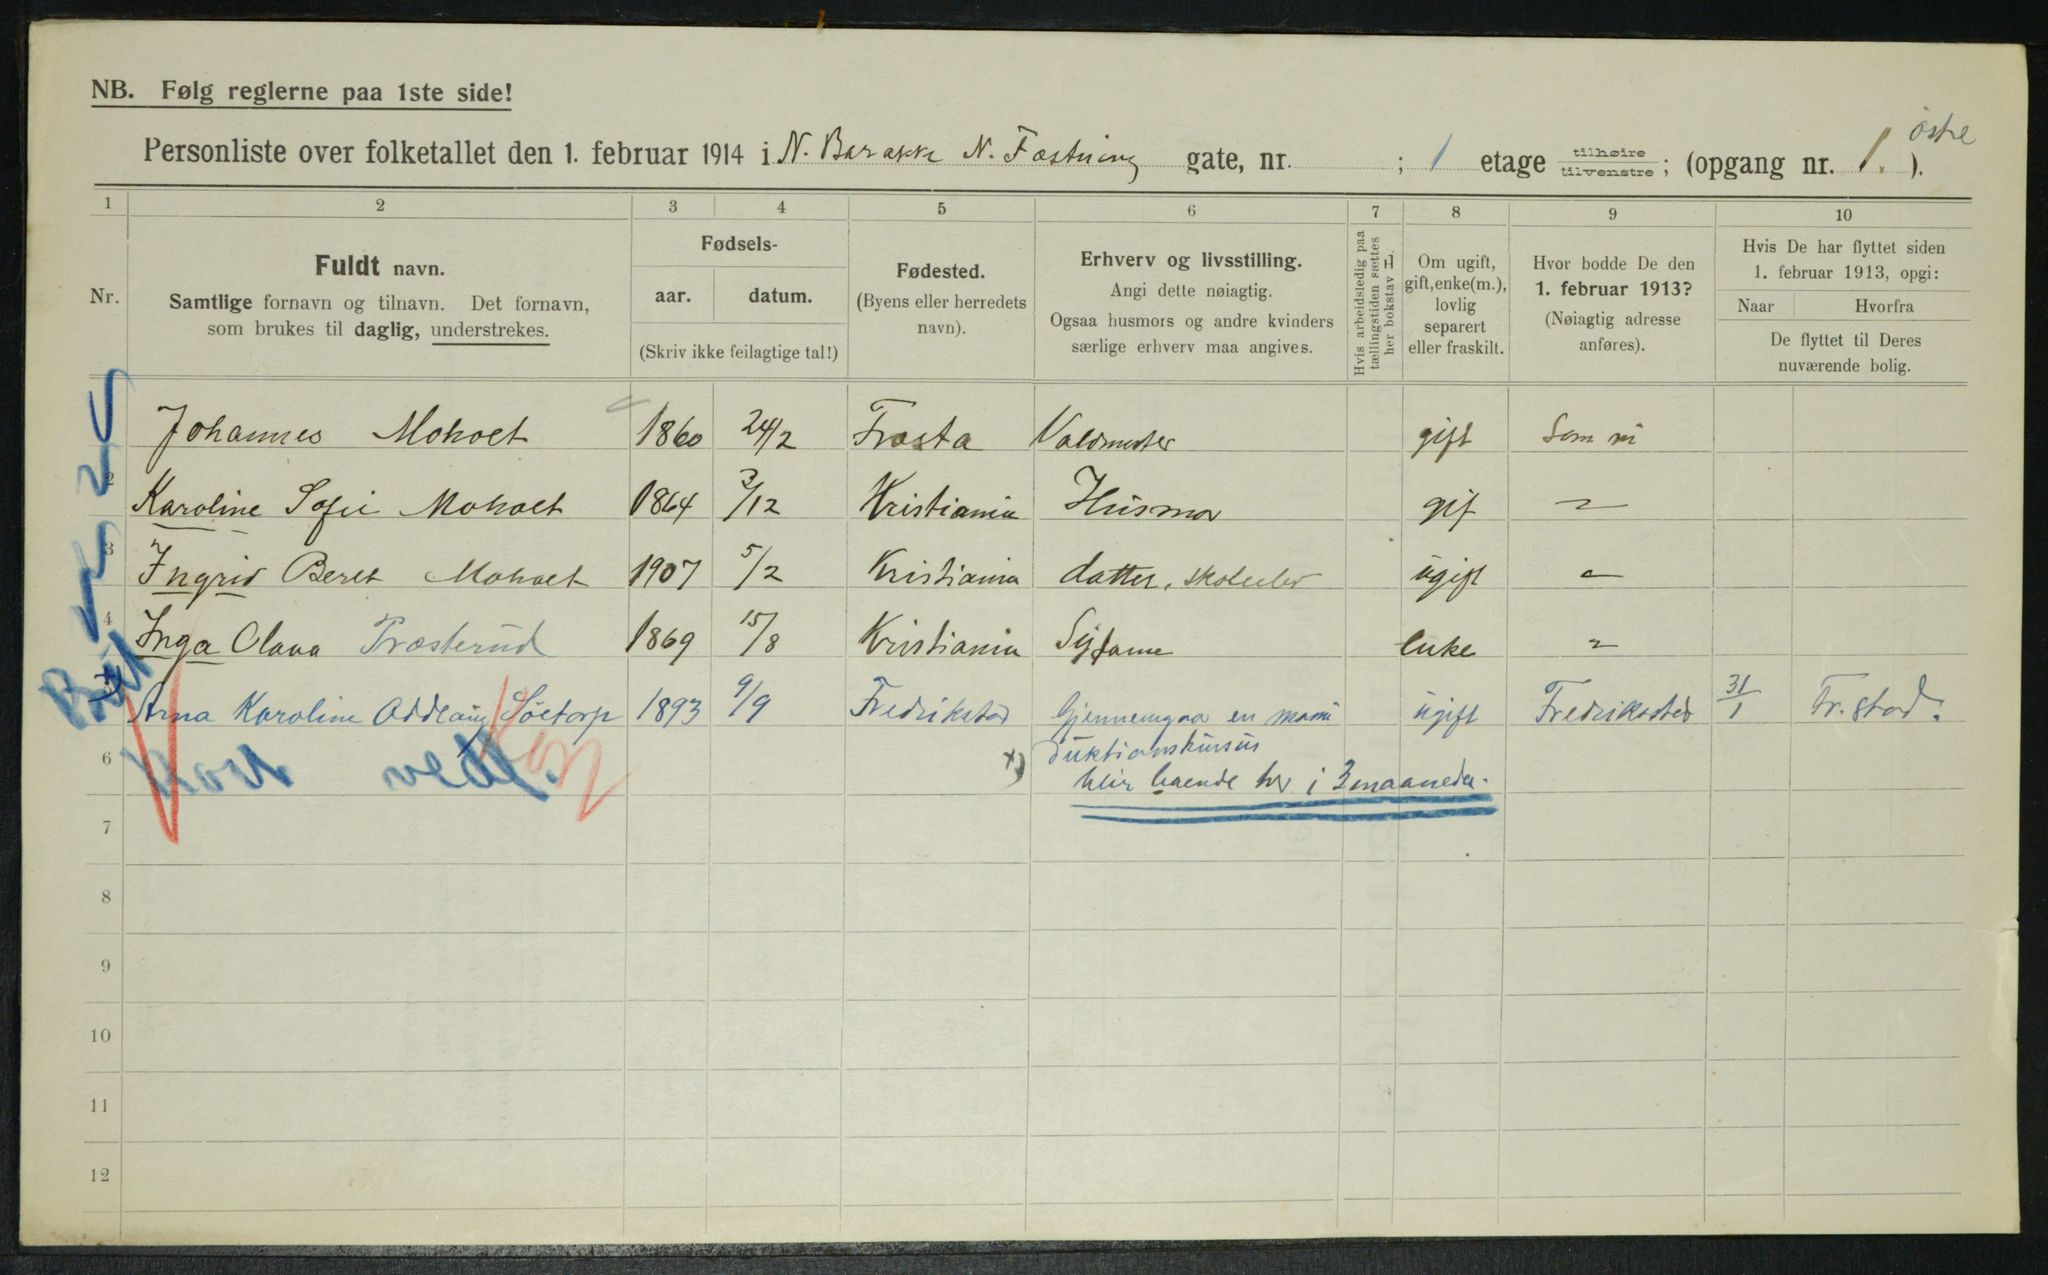 NB. Følg reglerne paa 1ste side!
Personliste over folketallet den 1. februar 1914 i N. Barakke N. Fæstning gate, nr. ; 1 etage tilhøire tilvenstre ; (opgang nr. 1. østre ).
1 2 3 4 5 6 7 8 9 10
Nr.
Fuldt navn.
Samtlige fornavn og tilnavn. Det fornavn,
som brukes til daglig, understrekes.
Fødsels-
aar. datum.
(Skriv ikke feilagtige tal!)
Fødested.
(Byens eller herredets
navn).
Erhverv og livsstilling.
Angi dette nøiagtig.
Ogsaa husmors og andre kvinders
særlige erhverv maa angives.
Hvis arbeidsledig paa
tællingstiden sættes
her bokstav L
Om ugift,
gift, enke(m.),
lovlig
separert
eller fraskilt.
Hvor bodde De den
1. februar 1913?
(Nøiagtig adresse
anføres).
Hvis De har flyttet siden
1. februar 1913, opgi:
Naar Hvorfra
De flyttet til Deres
nuværende bolig.
Johannes Moholt 1860 24/2 Frosta gift Som nu
2 Karoline Sofie Moholt 1864 3/12 Kristiania Husmor gif "
3 Ingrid Beret Moholt 1907 5/2 Kristiania datter, skoleelev ugift "
4 Inga Olava Præsterud 1869 15/8 Kristiania Sydame enke "
Arna Karoline Oddlaug Söetorp 1893 9/9 Fredrikstad Gjennemgaa en ugift Fredrikstad 31/1 Fr.stad.
6 x) duktionskursus
blir boende her i 3 maaneder.
Kort vedl.
7
8
9
10
11
12